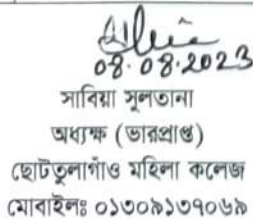 08.08.2023
সাবিয়া সুলতানা
অধ্যক্ষ (ভারপ্রাপ্ত)
ছোটতুলাগাঁও মহিলা কলেজ
মোবাইলঃ ০১৩০৯১৩৭০৬৯